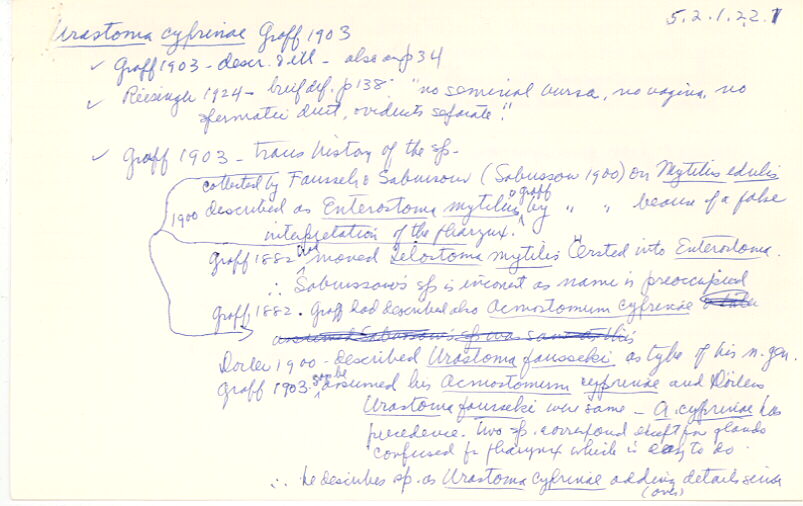 5.2.1.22.1
Urastoma cyprinae Graff 1903
✓ Graff 1903 - descr. & ill - also on p 34
✓ Reisinger 1924 - brief def. p 138: "no seminal bursa, no vagina, no
spermatic duct, oviducts separate."
✓ Graff 1903 - trans history of the sp -
collected by Faussek & Sabussow (Sabussow 1900) on Mytilis edulis
1900 described as Enterostoma mytilis, graff by " " because of a false
interpretation of the pharynx.
Graff 1882 had moved mytilis Örsted into Enterostoma.
∴ Sabussows sp is incorrect as name is preoccupied
Graff 1882. Graff had described also Acmostomum cyprinae
assumed Sabussow's sp was same as this
Dörler 1900 - described Urastoma fausseki as type of his n. gen.
Graff 1903 assumed his Acmostomum cyprinae and Dörlers
Urastoma fausseki were same - A. cyprinae has
precedence. Two sp. correspond except for glands
confused for pharynx which is easy to do.
∴ he describes sp. as Urastoma cyprinae adding details since
(over)